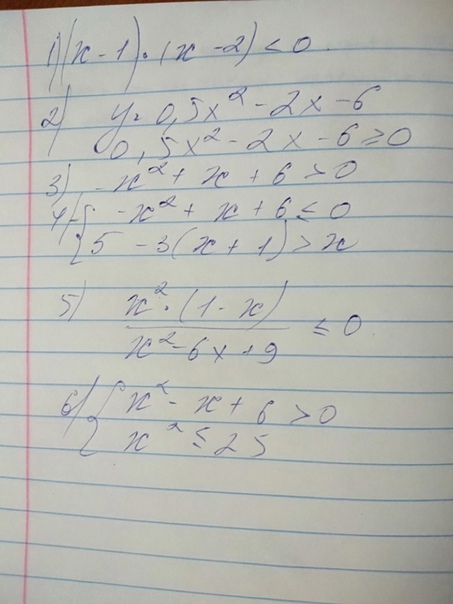 1) (x - 1) · (x - 2) < 0
2) y = 0,5x² - 2x - 6
0,5x² - 2x - 6 ≥ 0
3) -x² + x + 6 > 0
4) { -x² + x + 6 ≤ 0
5 - 3(x + 1) > x
5) x² · (1 - x)
x² - 6x + 9 ≤ 0
6) { x² - x + 6 > 0
x² ≤ 25